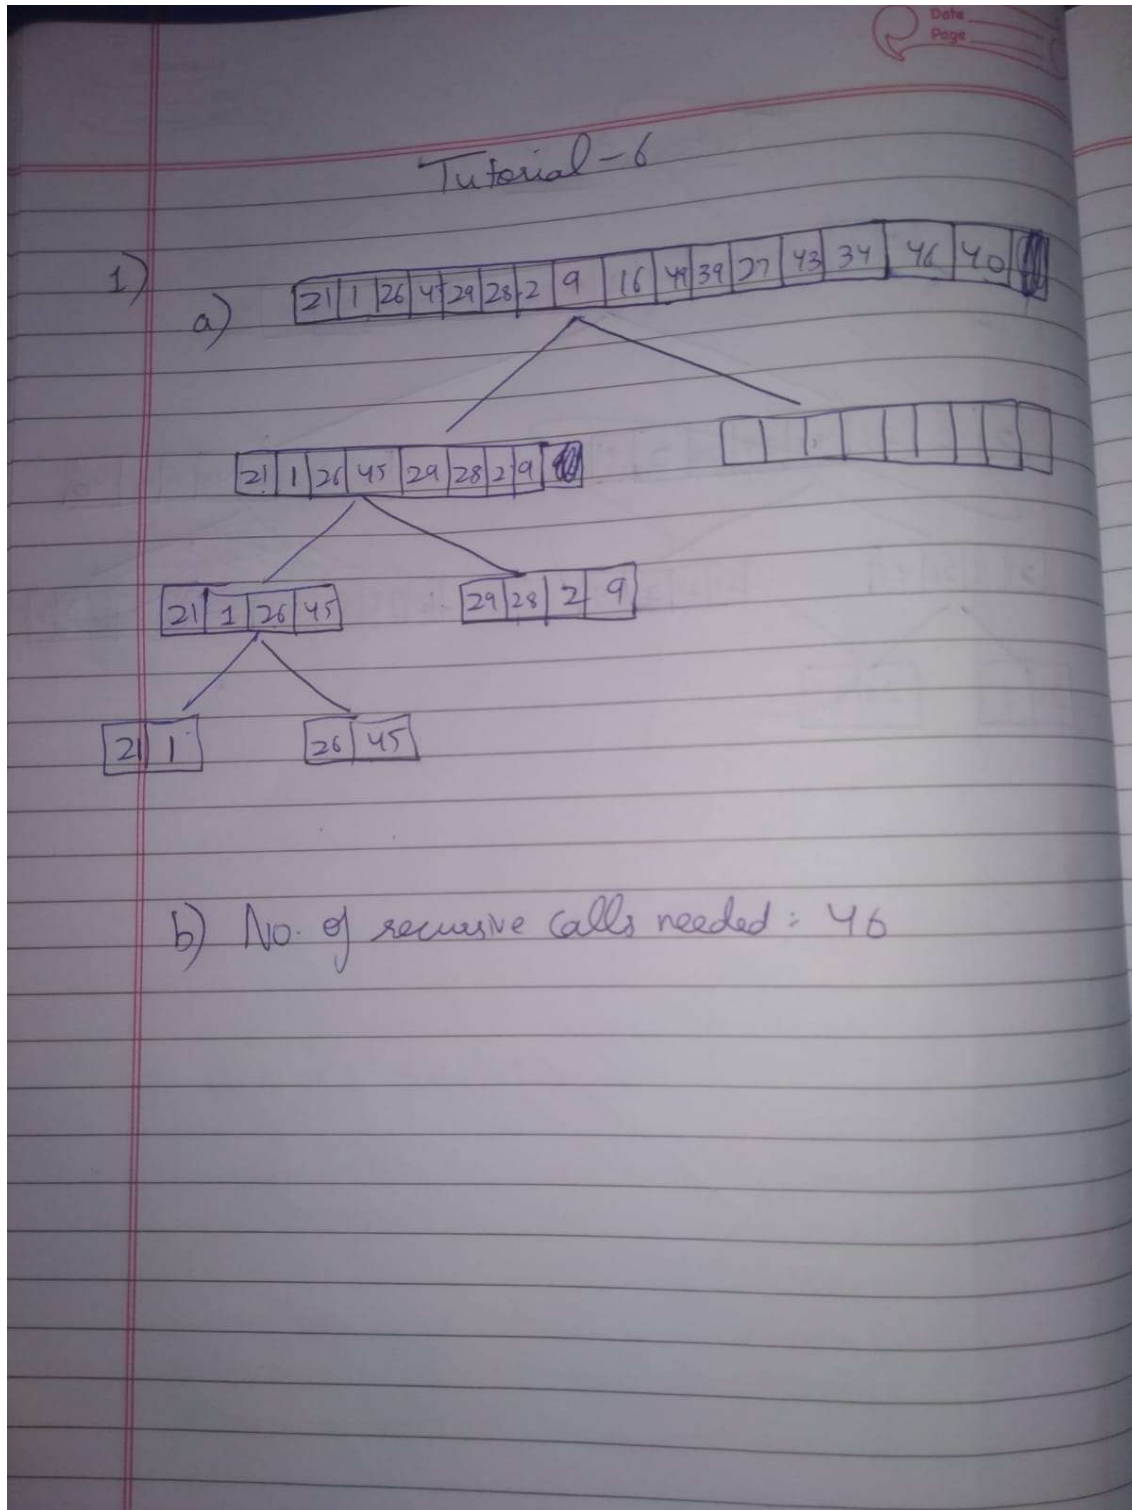 Date
Page
Tutorial - 6
1)
a) 21 1 26 29 28 2 9 16 39 27 43 34 46 40
21 1 26 45 29 28 2 9
21 1 26 45 29 28 2 9
21 1 26 45
b) No. of recursive calls needed : 46